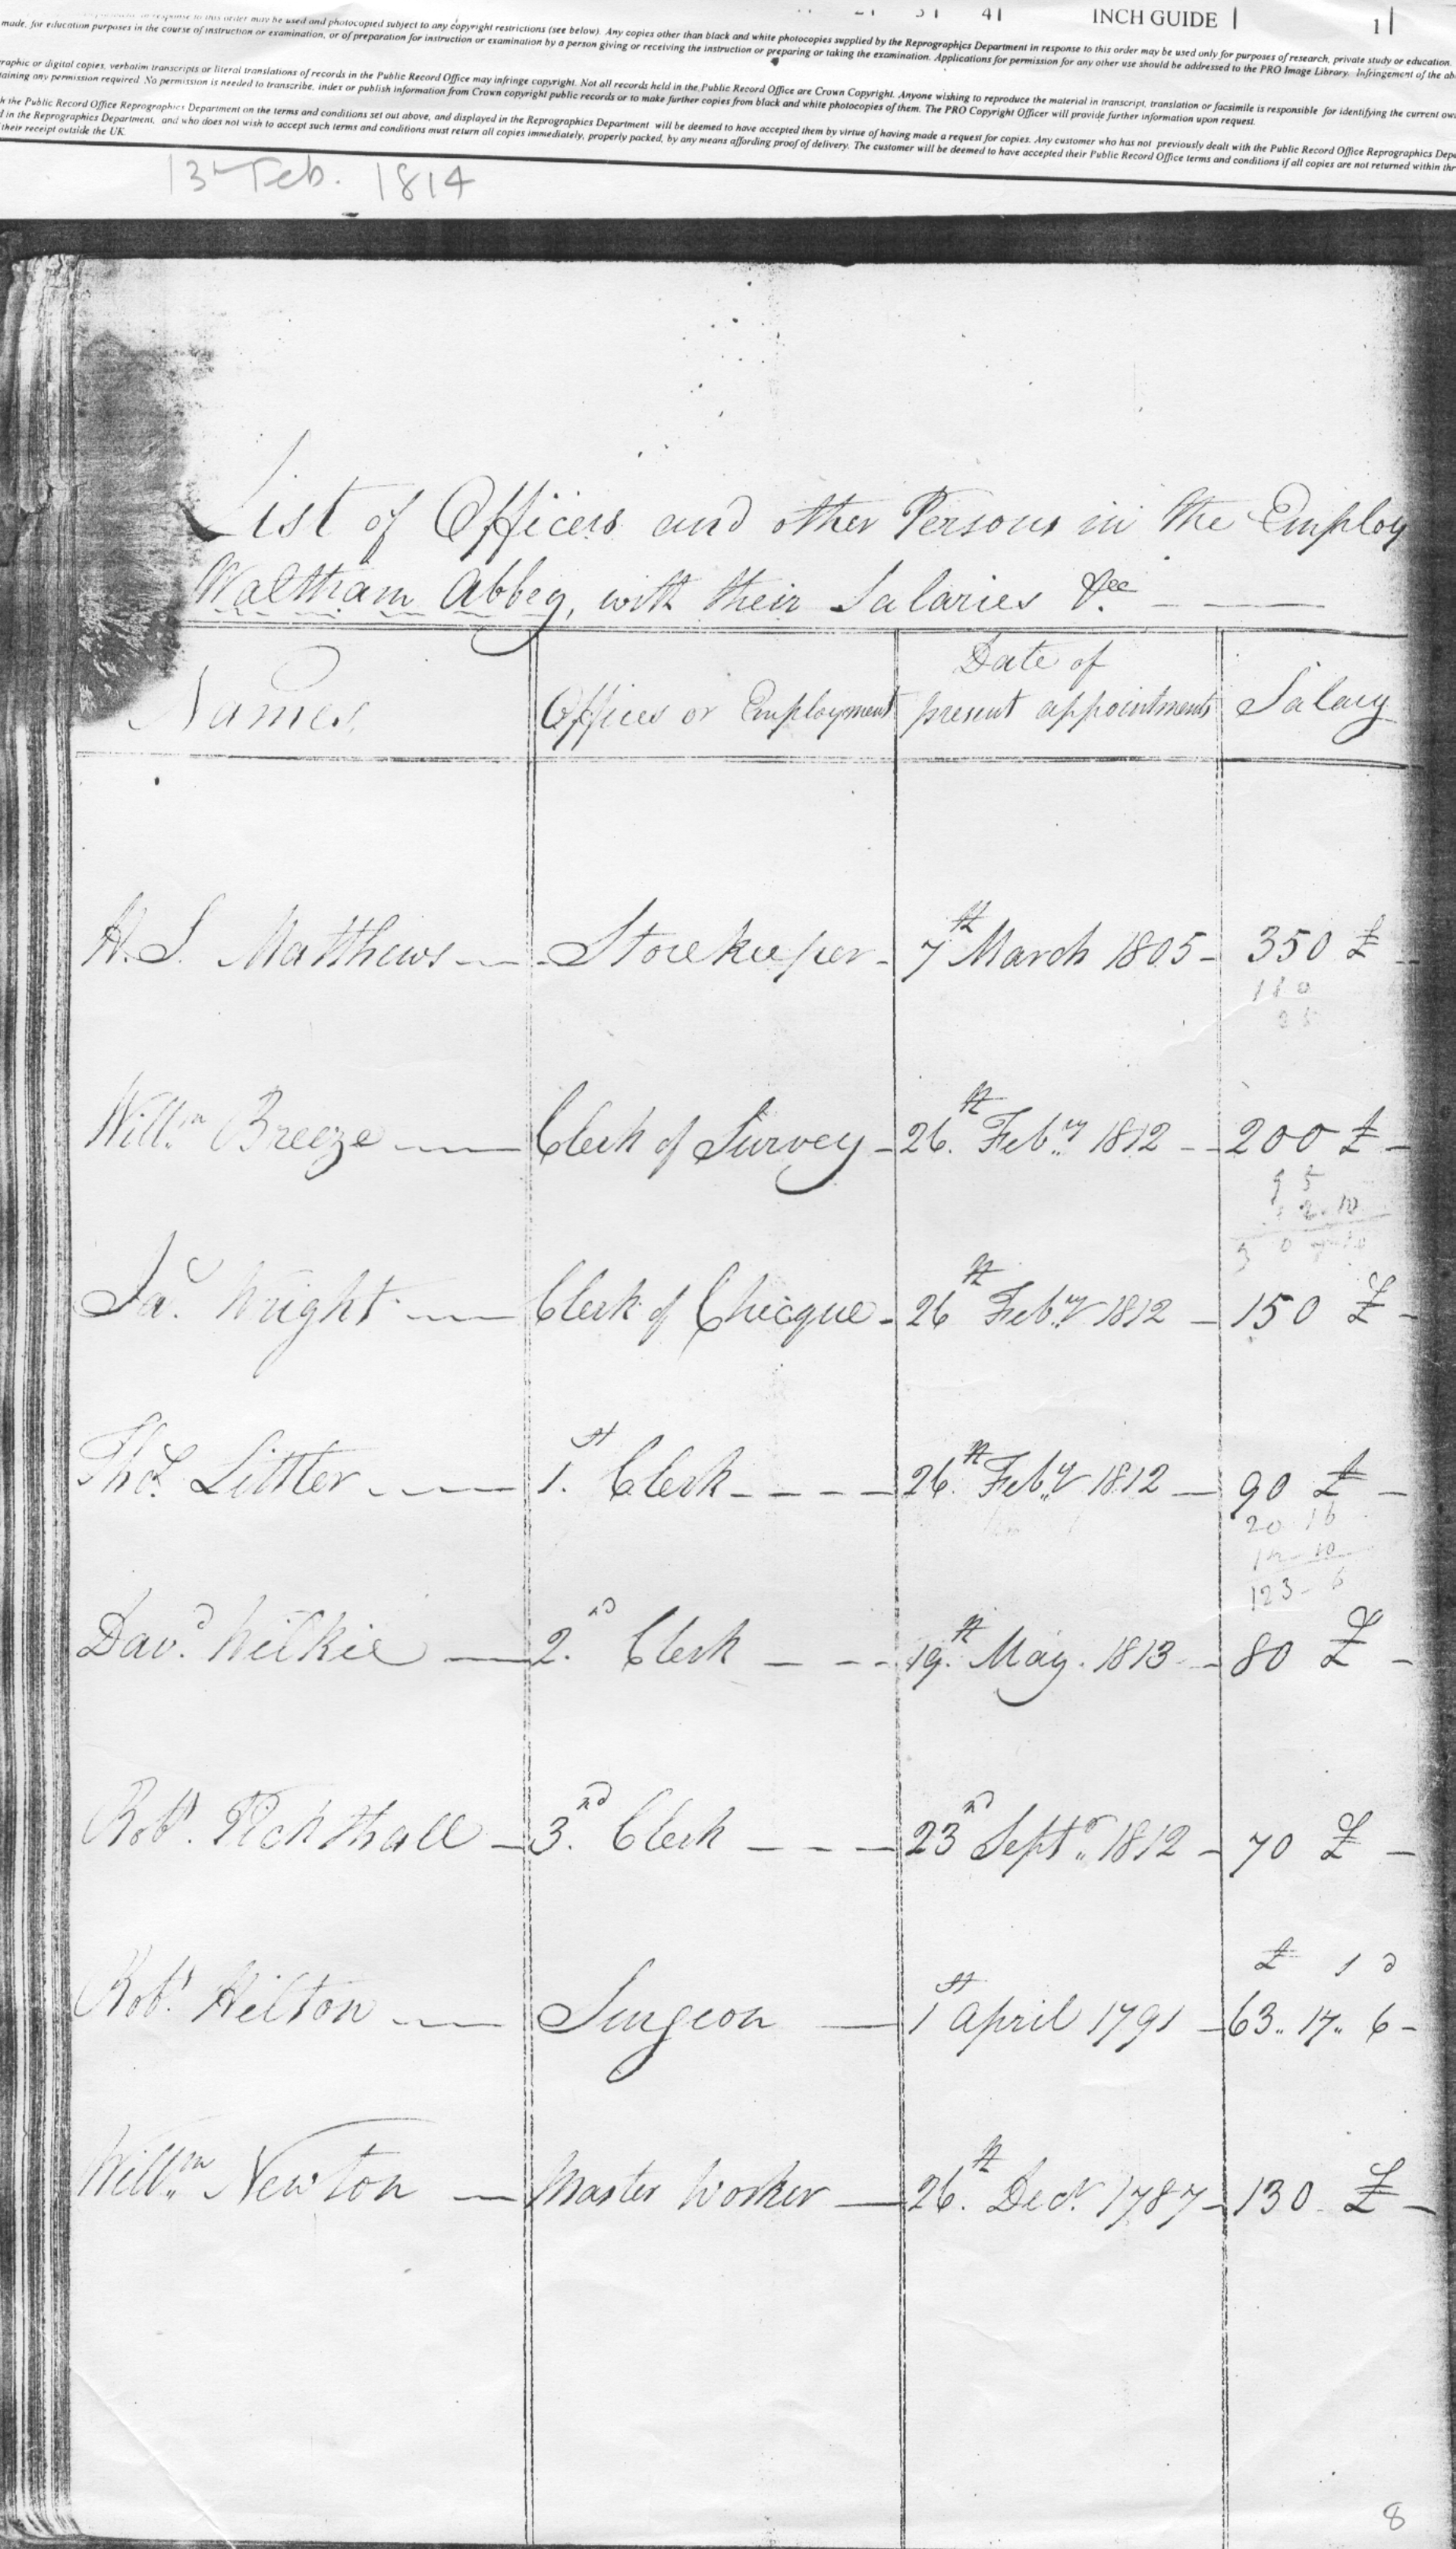 INCH GUIDE 1
response to this order may be used and photocopied subject to any copyright restrictions (see below). Any copies other than black and white photocopies supplied by the Reprographics Department in response to this order may be used only for purposes of research, private study or education.
made, for education purposes in the course of instruction or examination, or of preparation for instruction or examination by a person giving or receiving the instruction or preparing or taking the examination. Applications for permission for any other use should be addressed to the PRO Image Library. Infringement of the
raphic or digital copies, verbatim transcripts or literal translations of records in the Public Record Office may infringe copyright. Not all records held in the Public Record Office are Crown Copyright. Anyone wishing to reproduce the material in transcript, translation or facsimile is responsible for identifying the current
taining any permission required. No permission is needed to transcribe, index or publish information from Crown copyright public records or to make further copies from black and white photocopies of them. The PRO Copyright Officer will provide further information upon request.
h the Public Record Office Reprographics Department on the terms and conditions set out above, and displayed in the Reprographics Department will be deemed to have accepted them by virtue of having made a request for copies. Any customer who has not previously dealt with the Public Record Office Reprographics
d in the Reprographics Department, and who does not wish to accept such terms and conditions must return all copies immediately, properly packed, by any means affording proof of delivery. The customer will be deemed to have accepted their Public Record Office terms and conditions if all copies are not returned within
their receipt outside the UK.
13th Feb. 1814
List of Officers and other Persons in the Employ
Waltham Abbey, with their Salaries &ce
Names Offices or Employment Date of present appointments Salary
H. S. Matthews Storekeeper 7th March 1805 350 £
Willm Breeze Clerk of Survey 26th Feby 1812 200 £
95
Jas. Wright Clerk of Checque 26th Feby 1812 150 £
Thos. Littler 1st Clerk 26th Feby 1812 90 £
20 16
12 10
123 6
Davd. Wilkie 2nd Clerk 19th May. 1813 80 £
Robt. Pickthall 3nd Clerk 23nd Septr 1812 70 £
£ s d
Robt. Hilton Surgeon 1st April 1791 63.. 17.. 6
Willm Newton Master Worker 26th Decr. 1787 130 £
8